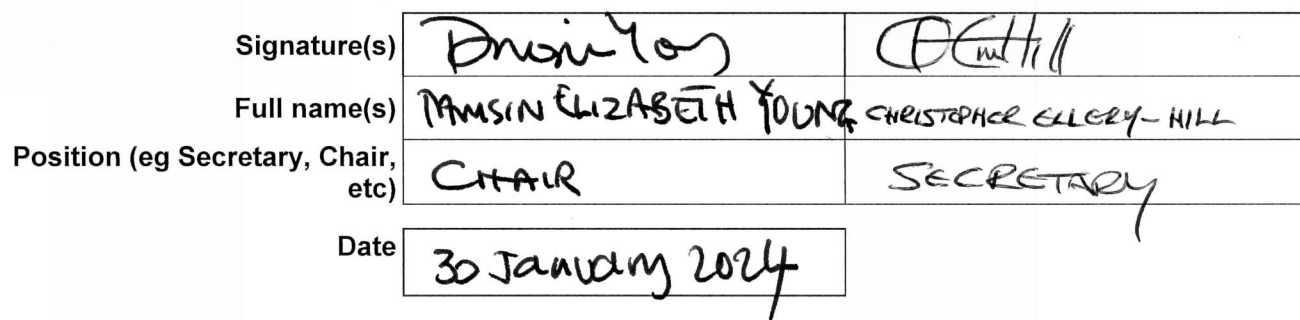 Signature(s)
Full name(s) TAMSIN ELIZABETH YOUNG CHRISTOPHER ELLERY-HILL
Position (eg Secretary, Chair,
etc) CHAIR SECRETARY
Date 30 January 2024